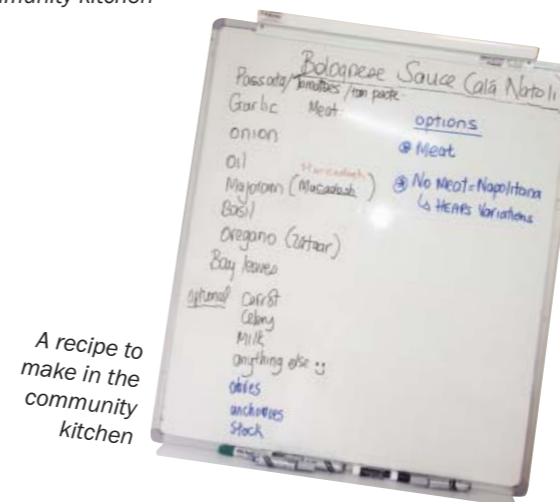 munity kitchen
Bolognese Sauce (alá Natoli
Passata/Tomatoes/tom paste
Garlic Meat
onion
oil
Marcadash
Majoram (Macadash)
Basil
oregano (Zahtaar)
Bay leaves
optional Carrot
Celery
Milk
anything else
olives
anchovies
Stock
options
Meat
No Meat = Napolitana
↳ HEAPs Variations
A recipe to
make in the
community
kitchen